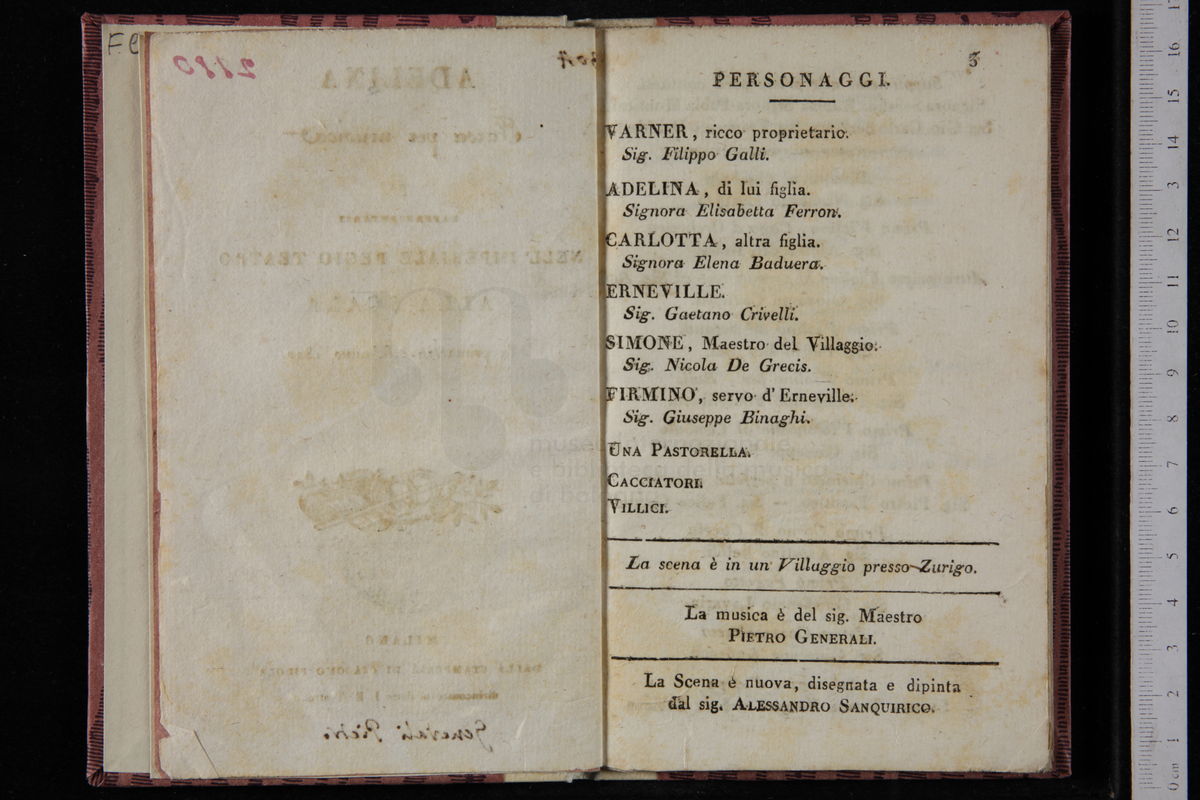 Fe
2880
ADELINA
NELL'IMPERIALE REGIO TEATRO
ALLA SCALA
MILANO
Generali Pietro.
3
PERSONAGGI.
VARNER, ricco proprietario.
Sig. Filippo Galli.
ADELINA, di lui figlia.
Signora Elisabetta Ferron.
CARLOTTA, altra figlia.
Signora Elena Baduera.
ERNEVILLE.
Sig. Gaetano Crivelli.
SIMONE, Maestro del Villaggio.
Sig. Nicola De Grecis.
FIRMINO, servo d'Erneville.
Sig. Giuseppe Binaghi.
UNA PASTORELLA.
CACCIATORI.
VILLICI.
La scena è in un Villaggio presso Zurigo.
La musica è del sig. Maestro
PIETRO GENERALI.
La Scena è nuova, disegnata e dipinta
dal sig. ALESSANDRO SANQUIRICO.
0 cm 1 2 3 4 5 6 7 8 9 10 11 12 13 14 15 16 17